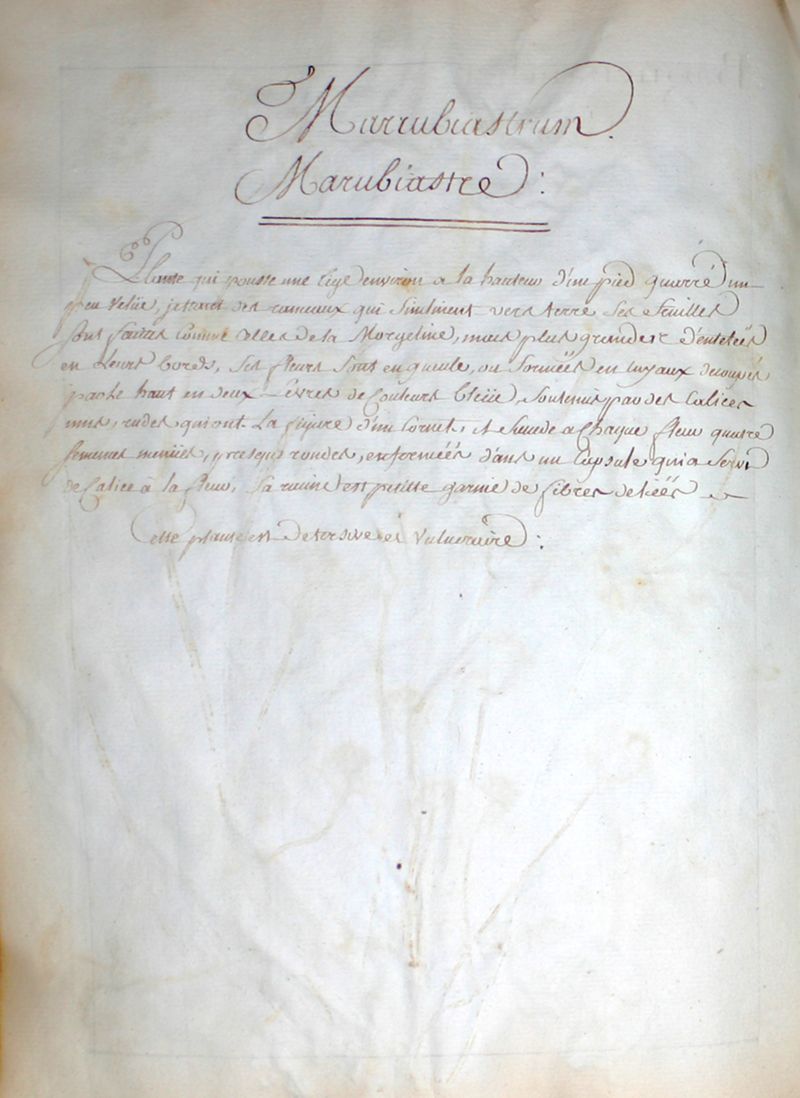 Marrubiastrum.
Marubiastre :
Plante qui pousse une tige d'environ a la hauteur d'un pied quarré un
peu velüe, jettant des rameaux qui s'inclinent vers terre ses feuilles
sont faittes comme celles de la Morgeline, mais plus grande et d'entelées
en leurs bords, ses fleurs sont en gueule, ou formées en tuyaux decoupés
par le haut en deux levres de Couleurs bleüe, soutenus par des Calices
rudes qui ont La figure d'un Cornet, il succede a Chaque fleur quatre
semences menües, presque rondes, enfermées d'ans un Capsule qui a servi
de Calice à la fleur, sa racine est petitte garnie de fibres deliées
Cette plante est Detersive et Vulneraire :